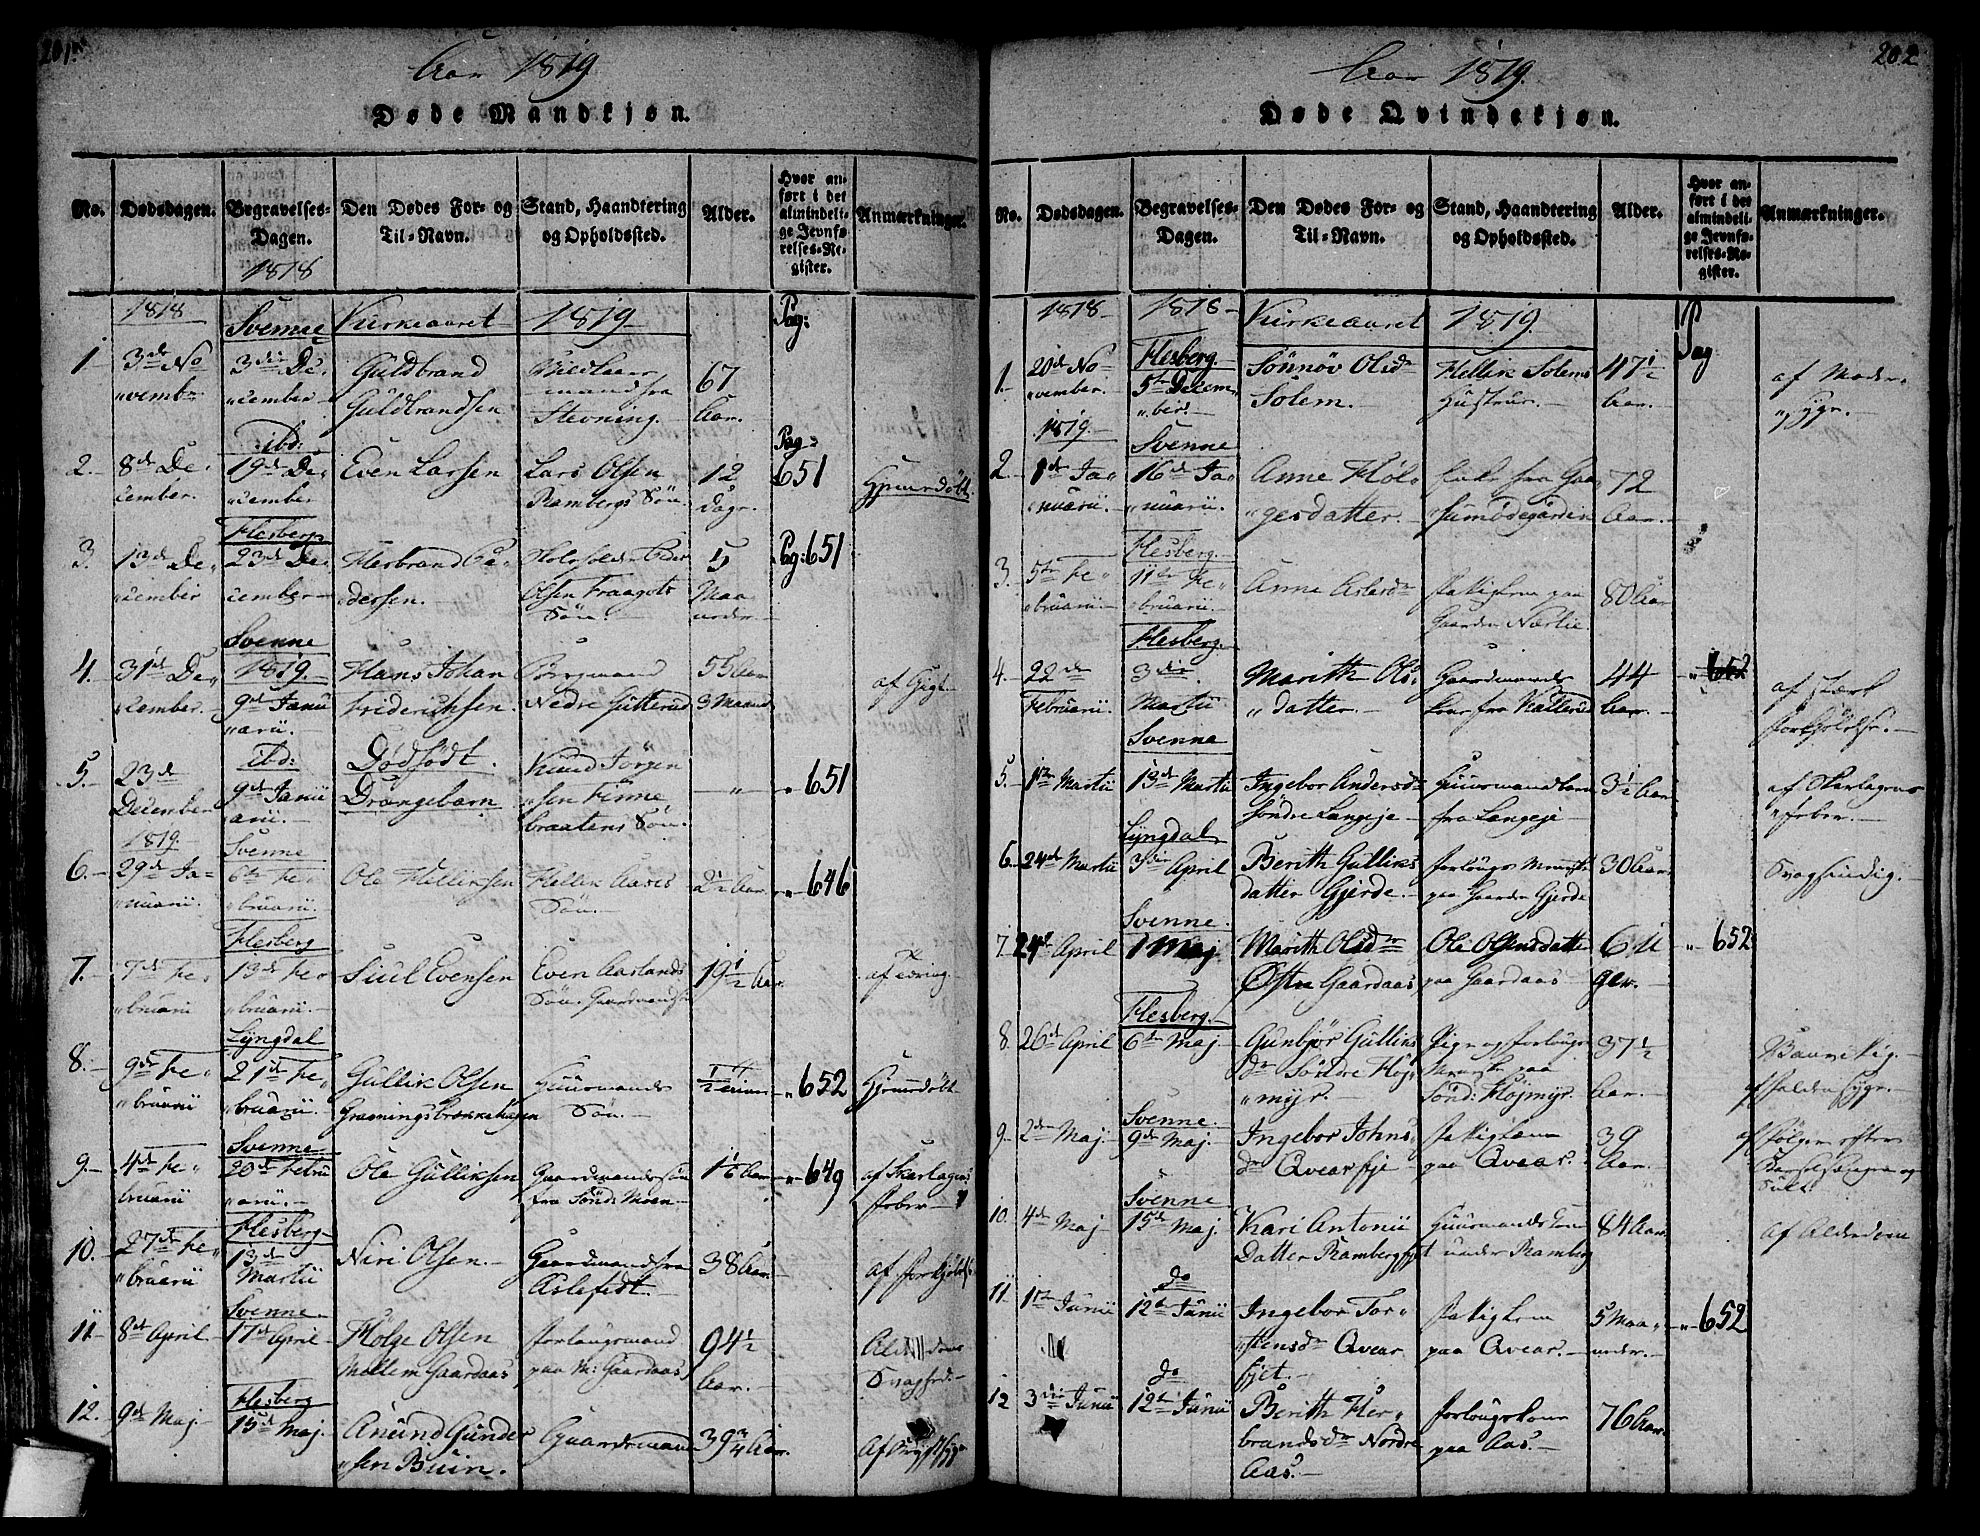 201.
Aar 1819
Døde Mandkjøn.
No.
Dødsdagen.
Begravelses-
Dagen.
Den Dødes For- og
Til-Navn.
Stand, Haandtering
og Opholdssted.
Alder.
Hvor an-
ført i det
almindeli-
ge Jevnfø-
relses-Re-
gister.
Anmærkninger.
1818
1818
Svenne
Kirkeaaret
1819
Pag:
1.
3die No
vembr
3die De
cember
Guldbrand
Guldbrandsen
Stevning.
67
Aar.
2.
8de De
cember.
ibd:
19de De
cember
Even Larsen
Lars Olsen
Rambergs Søn
12
Dage.
Pag:
651
Hjemmedøbt
3.
13de De
cember
Flesberg
23de De
cember
Herbrand Pe
dersen.
Olsen Fraagots
Søn.
5
Maa
neder
Pag: 651
4.
31te De
cember.
Svenne
1819.
9de Janu
arii.
Hans Johan
Friderichsen.
Bergmand
Nedre Gutterud
55 Aar
3 Maaned
af Gigt
5.
23de
December
ibd:
9de Janu
arii.
Dødfødt.
Drængebarn
Knud Jørgen
sen Finne
braatens Søn.
"
651
1819.
6.
29de Ja
nuarii.
Svenne
6te Fe
bruarii
Ole Helliksen
Hellik Aases
Søn.
2½ Aar.
646
7.
7de Fe
bruarii
Flesberg
13de Fe
bruarii.
Siul Evensen
Even Aaslands
Søn. Gaardmands
19½ Aar.
af tæring.
8.
9de Fe
bruarii
Lyngdal
21de Fe
bruarii.
Gullik Olsen
Huusmands
Søn.
652
Hjemmedøbt
9.
4de Fe
bruarii
Svenne
20de Febru
arii.
Ole Gulliksen
Gaardmandssøn
fra Sønd: Moen
649
af Skarlagens
feber
10.
27de Fe
bruarii
Flesberg
13de
Martii
Niri Olsen.
Gaardmand fra
Aslefedt.
38 Aar.
af forkjølelse
11
8de April
Svenne
17de April
Holge Olsen
Mellem Gaardaas
Forlougsmand
paa M: Gaardaas
94½
Aar.
Alderdoms
Svaghed.
12.
9de Maj
Flesberg
15de Maj.
Anund Gunder
sen Buin.
Gaardmand
39¾ Aar.
202
Aar 1819.
Døde Qvindekjøn.
No.
Dødsdagen.
Begravelses-
Dagen.
Den Dødes For- og
Til-Navn.
Stand, Haandtering
og Opholdssted.
Alder.
Hvor an-
ført i det
almindeli-
ge Jevnfø-
relses-Re-
gister.
Anmærkninger.
1818
1818
Kirkeaaret
1819.
Pag
1.
20de No
vember.
Flesberg
5te Decem
ber.
Sønnøv Olsdr
Solem.
Hellik Solems
Hustrue.
47½
Aar.
af Moder
syge.
1819.
2.
1ste Ja
nuarii.
Svenne
16de Ja
nuarii.
Anne Høl
gesdatter.
Enke fra Gaa
72
Aar.
3.
5te Fe
bruarii.
Flesberg.
11te Fe
bruarii.
Anne Aslesdr
Fattiglem paa
Gaarden Nærstie
80 Aar
4.
22de
Februarii.
Flesberg.
3die
Martii
Marith Ols
datter.
Gaardmands
Kone fra Kallerud
44
Aar.
652
af stærk
Forkjølelse.
5.
1ste Martii
Svenne
13de Martii
Ingebor Andersdr
Søndre Langeje
Huusmandsbarn
fra Langeje
3½ Aar
af Skarlagens
feber.
6.
24de Martii
Lyngdal
3die April
Berith Gulliks
datter Gjerde.
Forlougs Menneske
paa Gaarden Gjerde
30 Aar
Svagsindig.
7.
24de April
Svenne.
1 Maj
Marith Olsdr
Østre Gaardaas
Ole Olsens datter
paa Gaardaas
6 U
ger.
652
8.
26de April
Flesberg.
6te Maj.
Gunbjør Gulliks
dr Søndre Høj
myr.
Pige og Forlougs
Menneske paa
Sønd: Højmyr.
37½
Aar.
9.
2den Maj.
Svenne.
9de Maj.
Ingebor Johns
dr Qvearfje
Fattiglem
paa Qveas.
39
Aar.
af Følger efter
Barselseng og
Sult.
10.
4de Maj
Svenne
15de Maj.
Kari Antonii
Datter Rambergejet
Huusmands Kone
under Ramberg
84 Aar.
af Alderdom
11.
1ste Junii
do
12te Junii
Ingebor Tor
stensdr Qvear
fjet.
Fattiglem
paa Qvear.
5 Maa
neder.
652
12
3die Junii
do
12te Junii
Berith Her
brandsdr Nordre
Aas.
Forlougskone
paa Aas.
76 Aar.